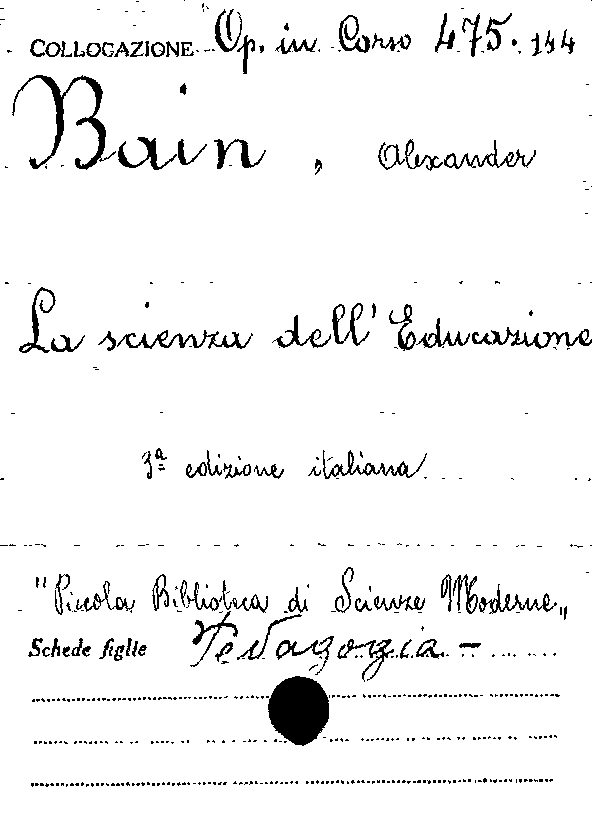 COLLOCAZIONE Op. in Corso 475. 144
Bain, Alexander
La scienza dell'Educazione
3ª edizione italiana
"Piccola Biblioteca di Scienze Moderne„
Schede figlie Pedagogia -